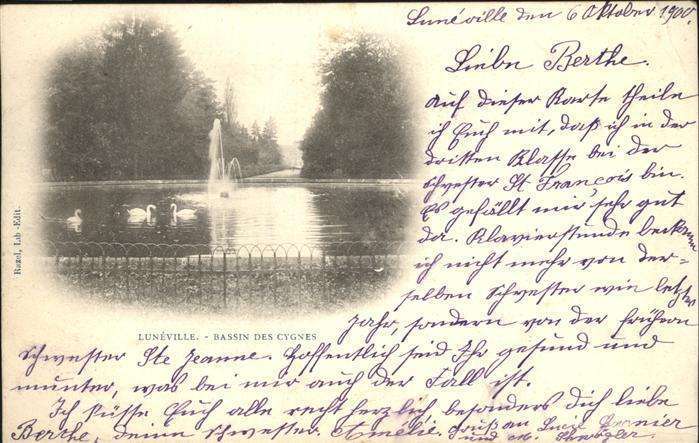 Lunéville den 6 Oktober 1900.
Liebe Berthe.
Auf dieser Karte theile
ich Euch mit, daß ich in der
dritten Klasse bei der
Schwester St. François bin.
Es gefällt mir sehr gut
da. Klavierstunde bekomme
ich nicht mehr von der=
selben Schwester wie letztes
Jahr, sondern von der frühern
Schwester Ste Jeanne. Hoffentlich seid Ihr gesund und
munter, was bei mir auch der Fall ist.
Ich küsse Euch alle recht herzlich, besonders dich liebe
Berthe, deine Schwester. Amélie. Gruß an Lucie
und M.
LUNÉVILLE. - BASSIN DES CYGNES
Lib.-Edit.